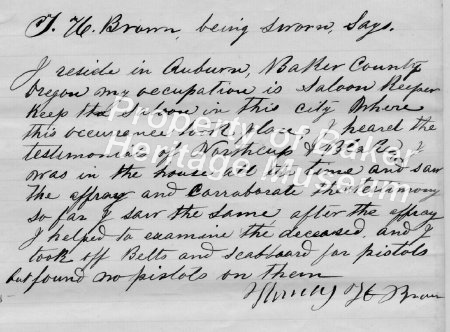 J. H. Brown, being sworn, says.
I reside in Auburn, Baker County
Oregon my occupation is Saloon Keeper
Keep the Saloon in this city Where
this occurence took place, I heard the
testimonies of &
was in the house all the time and saw
the affray and corraborate the testimony
so far I saw the same, after the affray
I helped to examine the deceased, and I
took off Belts and scabbard for pistols
but found no pistols on them
H Brown
Property of Baker
Heritage Museum